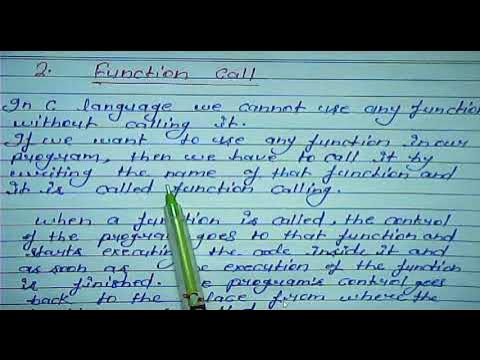 2. Function Call
In C language we cannot use any function
without calling it.
If we want to use any function in our
program, then we have to call it by
writing the name of that function and
it is called function calling.
when a function is called, the control
of the program goes to that function and
starts executing the code inside it and
as soon as the execution of the function
is finished. program's control goes
back to the place from where the